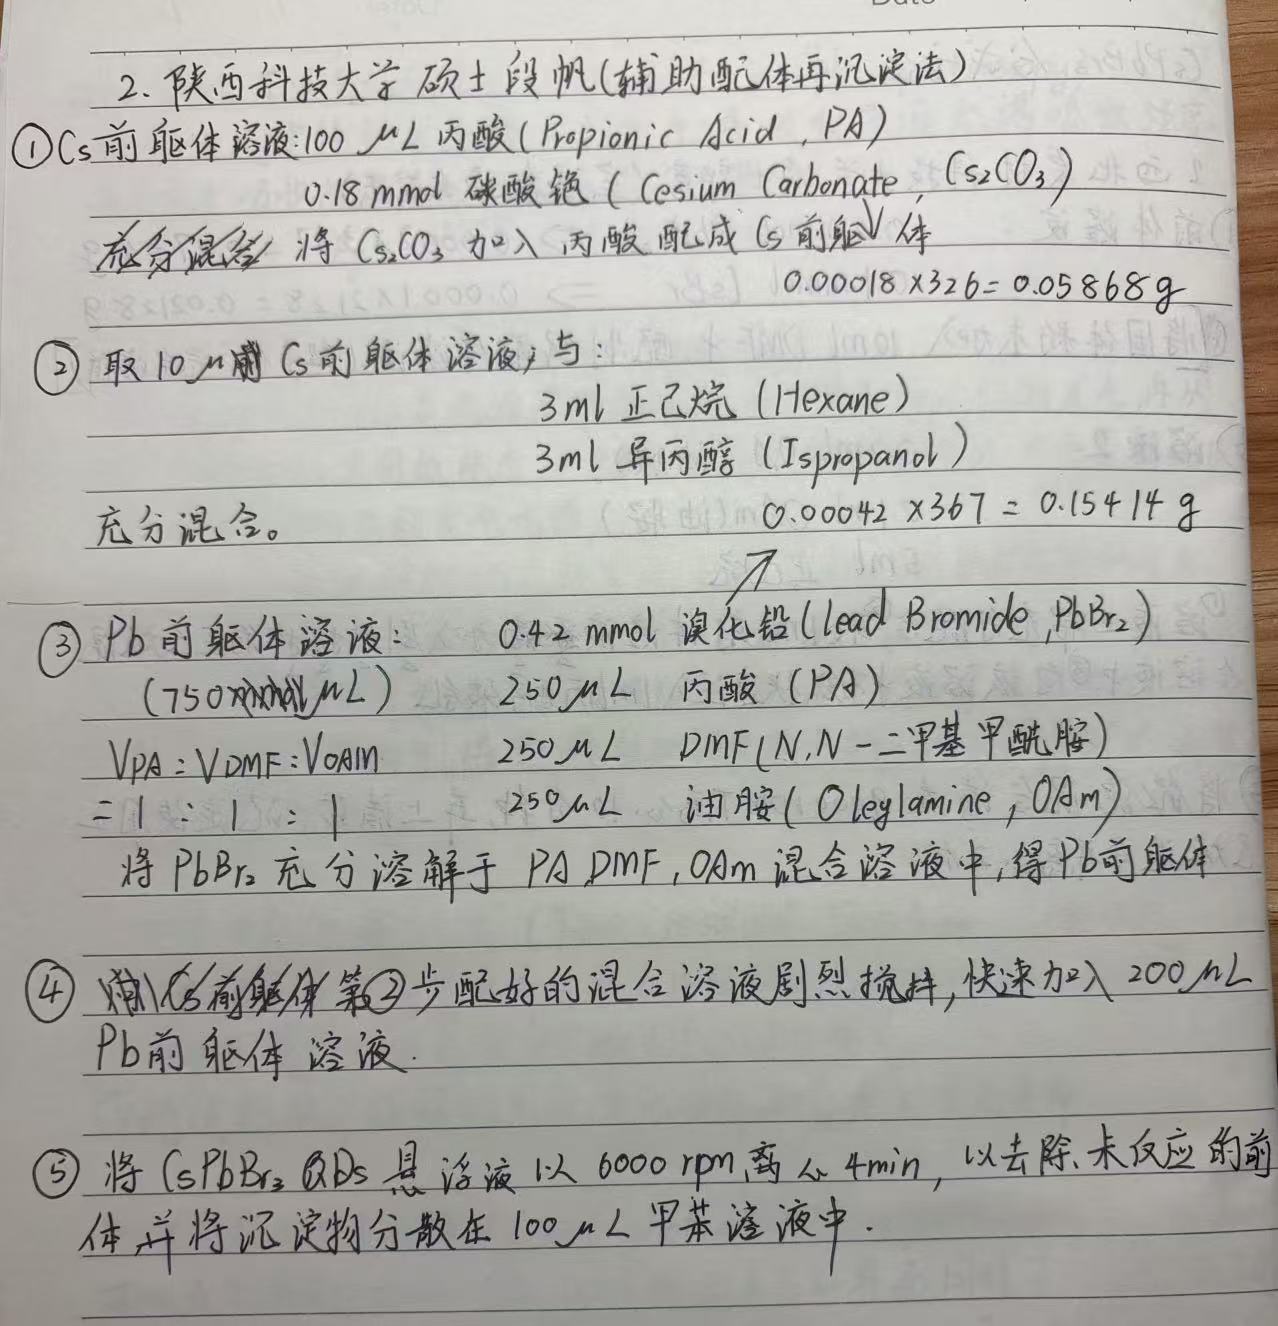 2. 陕西科技大学 硕士 段帆(辅助配体再沉淀法)
①Cs前驱体溶液:100 μL 丙酸(Propionic Acid, PA)
0.18 mmol 碳酸铯 (Cesium Carbonate, Cs₂CO₃)
充分混合 将 Cs₂CO₃ 加入 丙酸 配成 Cs 前驱体
0.00018×326=0.05868g
② 取10 μ Cs前驱体溶液,与:
3ml 正己烷 (Hexane)
3ml 异丙醇 (Ispropanol)
充分混合。
0.00042×367=0.15414 g
③ Pb前驱体溶液: 0.42 mmol 溴化铅(lead Bromide, PbBr₂)
(750 μL) 250 μL 丙酸 (PA)
VPA:VDMF:VOAm 250 μL DMF(N,N-二甲基甲酰胺)
=1:1:1 250 μL 油胺(Oleylamine, OAm)
将 PbBr₂ 充分溶解于 PA,DMF,OAm 混合溶液中,得Pb前驱体
④ Cs前驱体 第②步配好的混合溶液剧烈搅拌,快速加入 200 μL
Pb前驱体溶液.
⑤ 将 CsPbBr₃ QDs 悬浮液以 6000 rpm 离心 4min, 以去除未反应的前
体 并将沉淀物分散在 100 μL 甲苯溶液中.